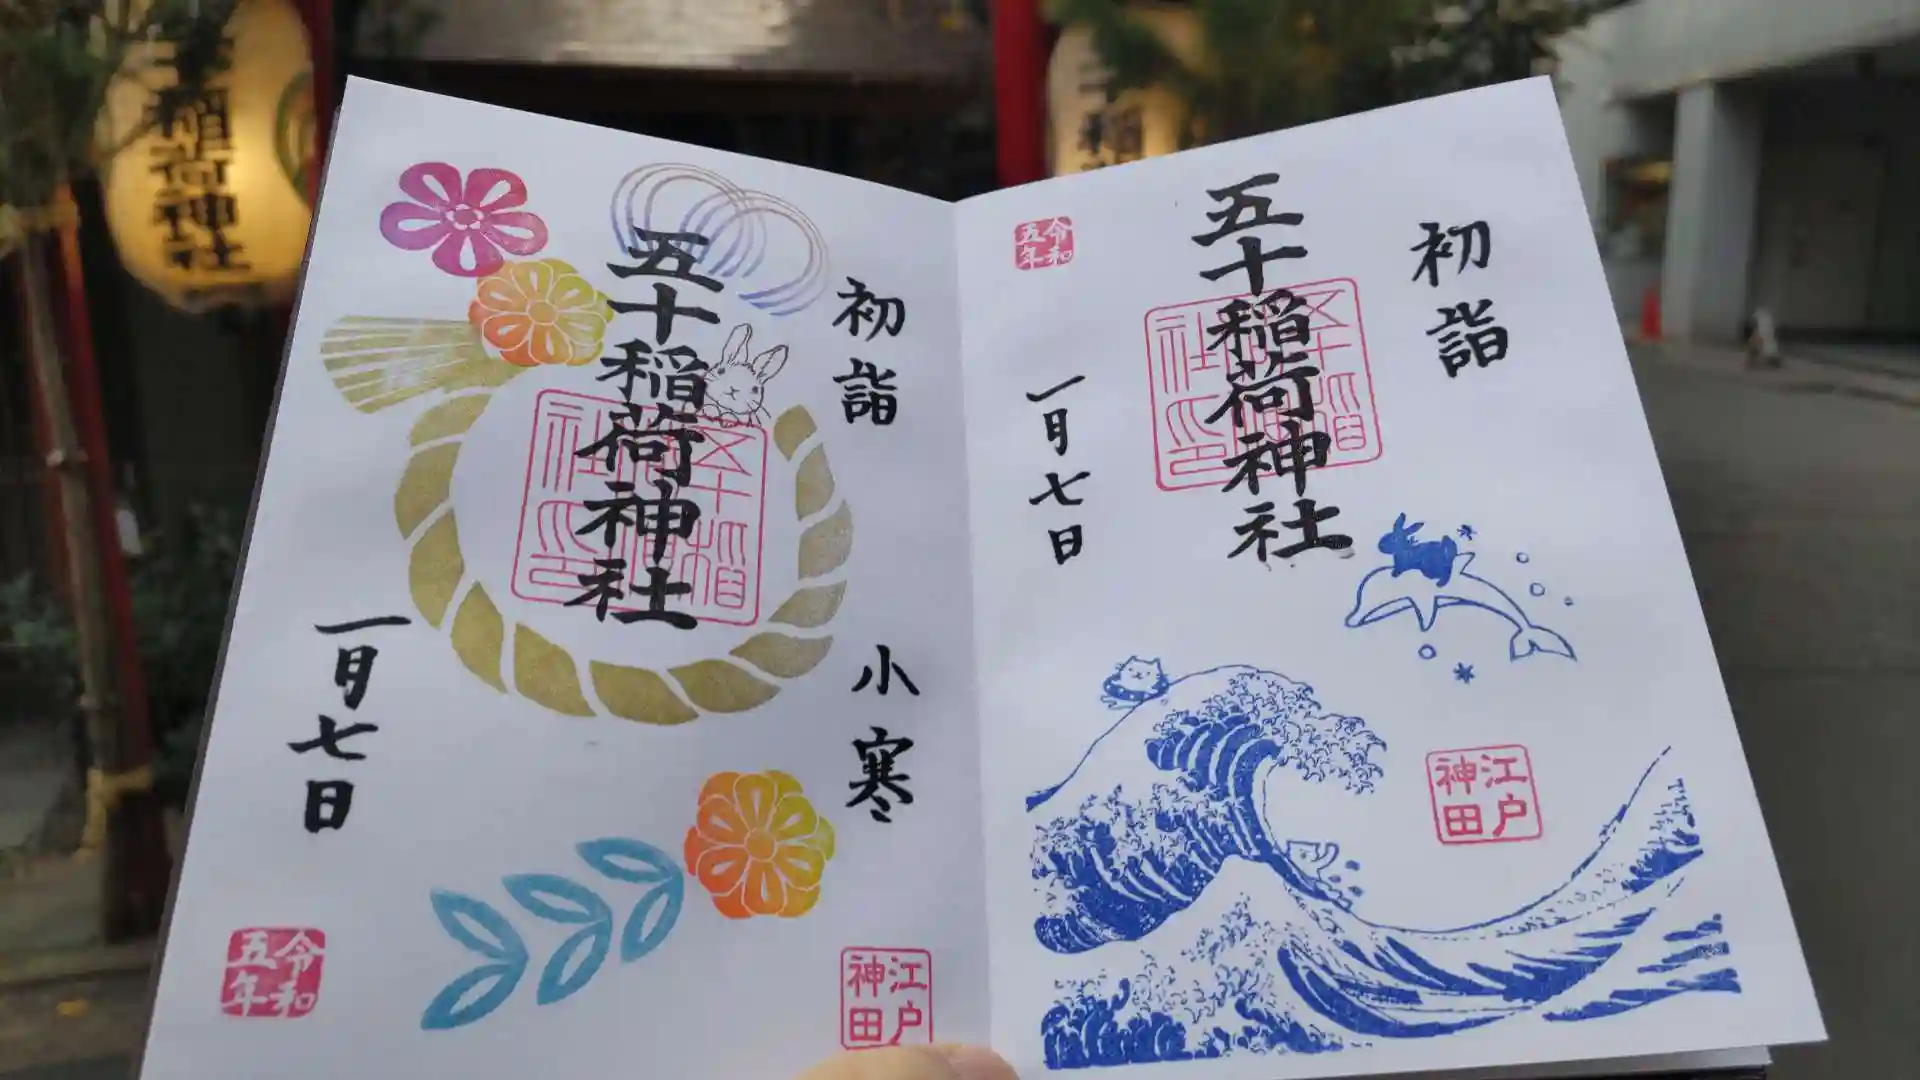 初詣
五十稲荷神社
一月七日
令和
五年
江戸
神田
初詣
小寒
五十稲荷神社
一月七日
令和
五年
江戸
神田
稲荷神社
稲